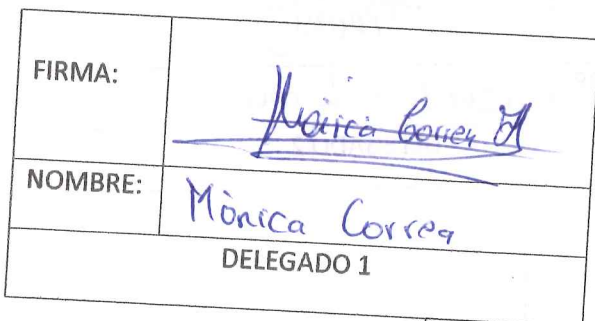 FIRMA:
Mónica Correa
NOMBRE:
Mònica Correa
DELEGADO 1